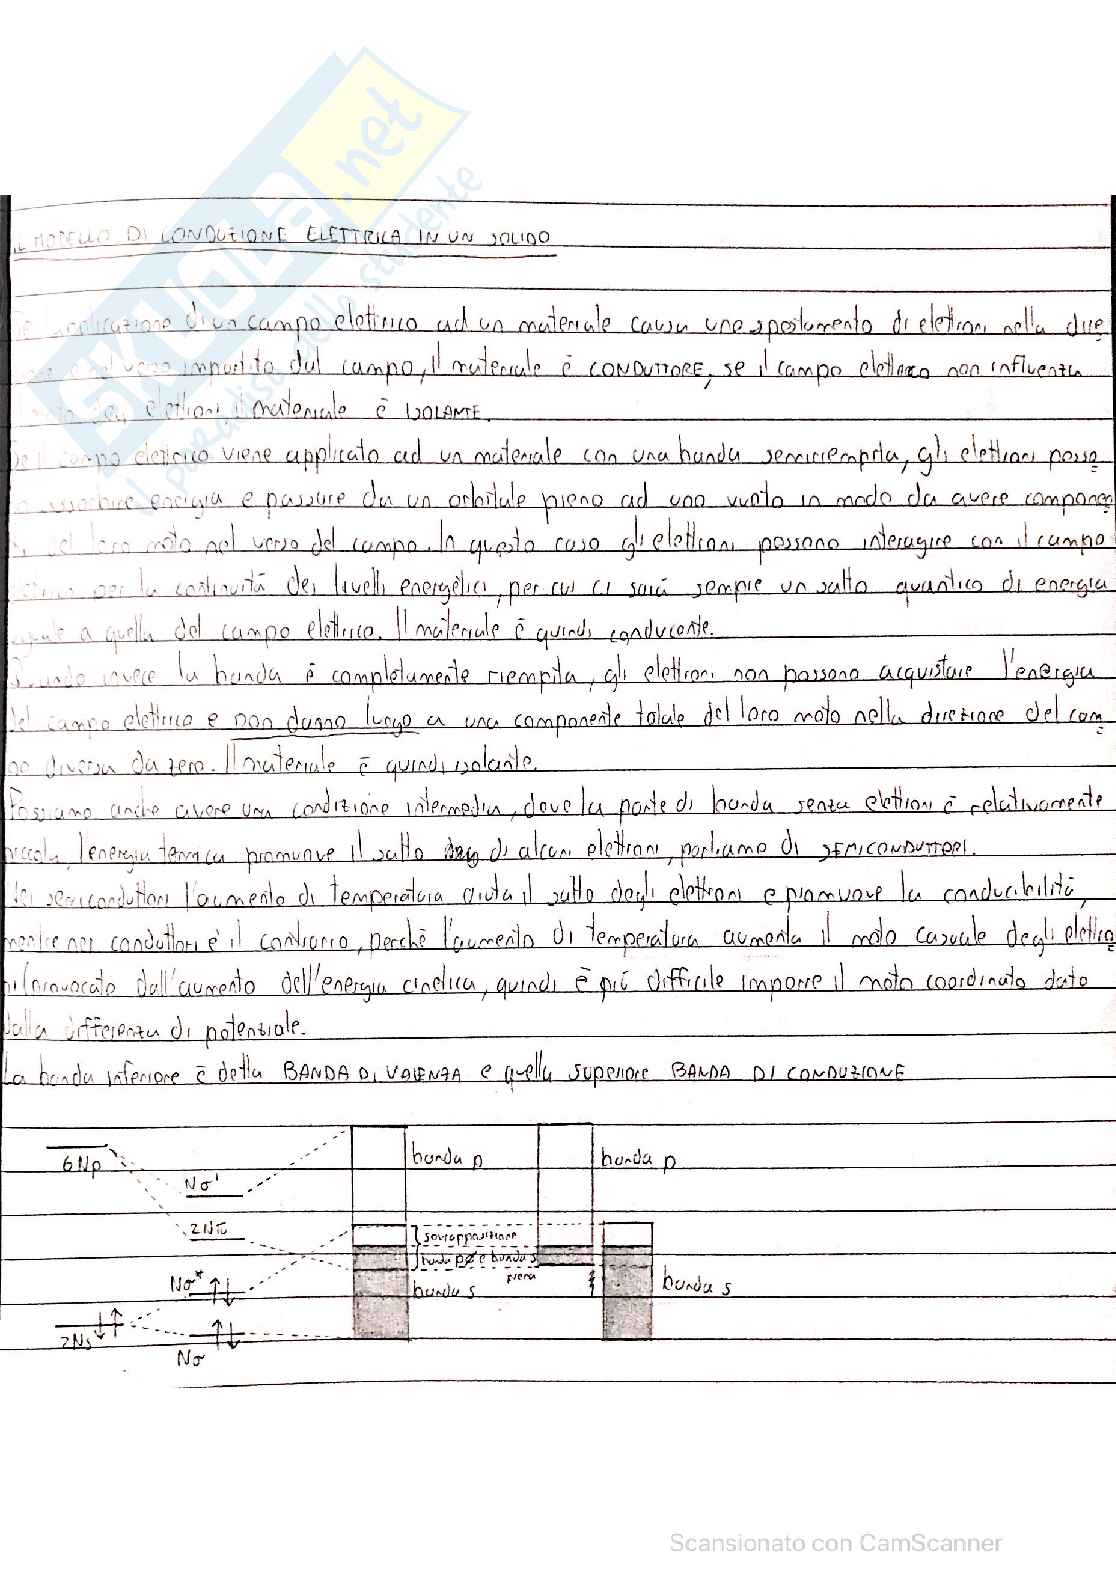 IL MODELLO DI CONDUZIONE ELETTRICA IN UN SOLIDO
Se l'applicazione di un campo elettrico ad un materiale causa uno spostamento di elettroni nella dire
zione e nel verso impartito dal campo, il materiale è CONDUTTORE, se il campo elettrico non influenza
il moto degli elettroni il materiale è ISOLANTE.
Se il campo elettrico viene applicato ad un materiale con una banda semiriempita, gli elettroni posso
no assorbire energia e passare da un orbitale pieno ad uno vuoto in modo da avere componen
ti del loro moto nel verso del campo. In questo caso gli elettroni possono interagire con il campo
elettrico per la continuità dei livelli energetici, per cui ci sarà sempre un salto quantico di energia
uguale a quella del campo elettrico. Il materiale è quindi conducente.
Quando invece la banda è completamente riempita, gli elettroni non possono acquistare l'energia
del campo elettrico e non danno luogo a una componente totale del loro moto nella direzione del cam
po diversa da zero. Il materiale è quindi isolante.
Possiamo anche avere una condizione intermedia, dove la parte di banda senza elettroni è relativamente
piccola, l'energia termica promuove il salto di alcuni elettroni, parliamo di SEMICONDUTTORI.
Nei semiconduttori l'aumento di temperatura aiuta il salto degli elettroni e promuove la conducibilità,
mentre nei conduttori è il contrario, perchè l'aumento di temperatura aumenta il moto casuale degli elettro
ni (provocato dall'aumento dell'energia cinetica, quindi è più difficile imporre il moto coordinato dato
dalla differenza di potenziale.
La banda inferiore è detta BANDA DI VALENZA e quella superiore BANDA DI CONDUZIONE
6Np
Nσ'
2Nπ
Nσ*
2Ns
Nσ
banda p
banda p
sovrapposizione
banda p e banda s
piena
banda s
banda s
Skuola.net
il paradiso dello studente
Scansionato con CamScanner